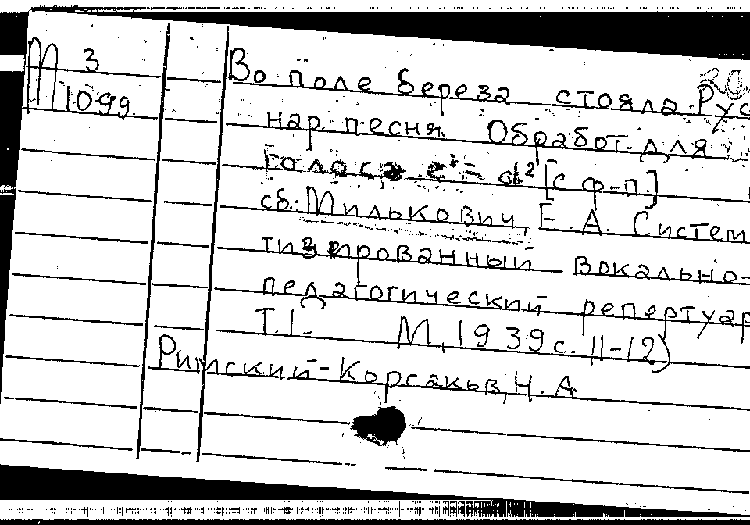 М 3
1099
Во поле береза стояла. Рус
нар. песня. Обработ. для
голоса c¹ - d² [с ф-п]
сб: Милькович, Е. А. Систем
тизированный вокально-
педагогический репертуар
Т.I. М, 1939 с. 11-12)
Римский-Корсаков, Н. А